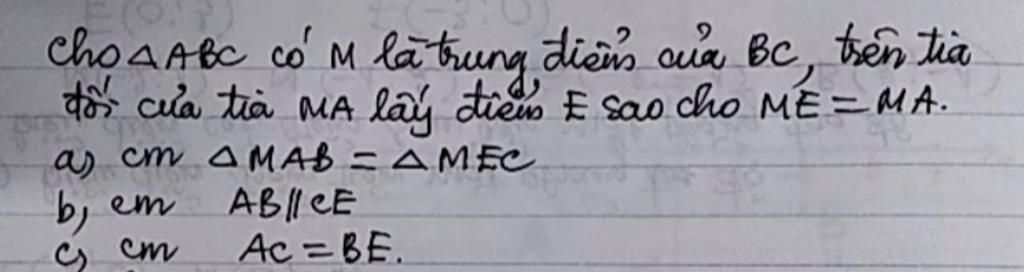 Cho △ABC có M là trung điểm của BC, trên tia
đối của tia MA lấy điểm E sao cho ME = MA.
a) cm △MAB = △MEC
b) cm AB // CE
c) cm AC = BE.